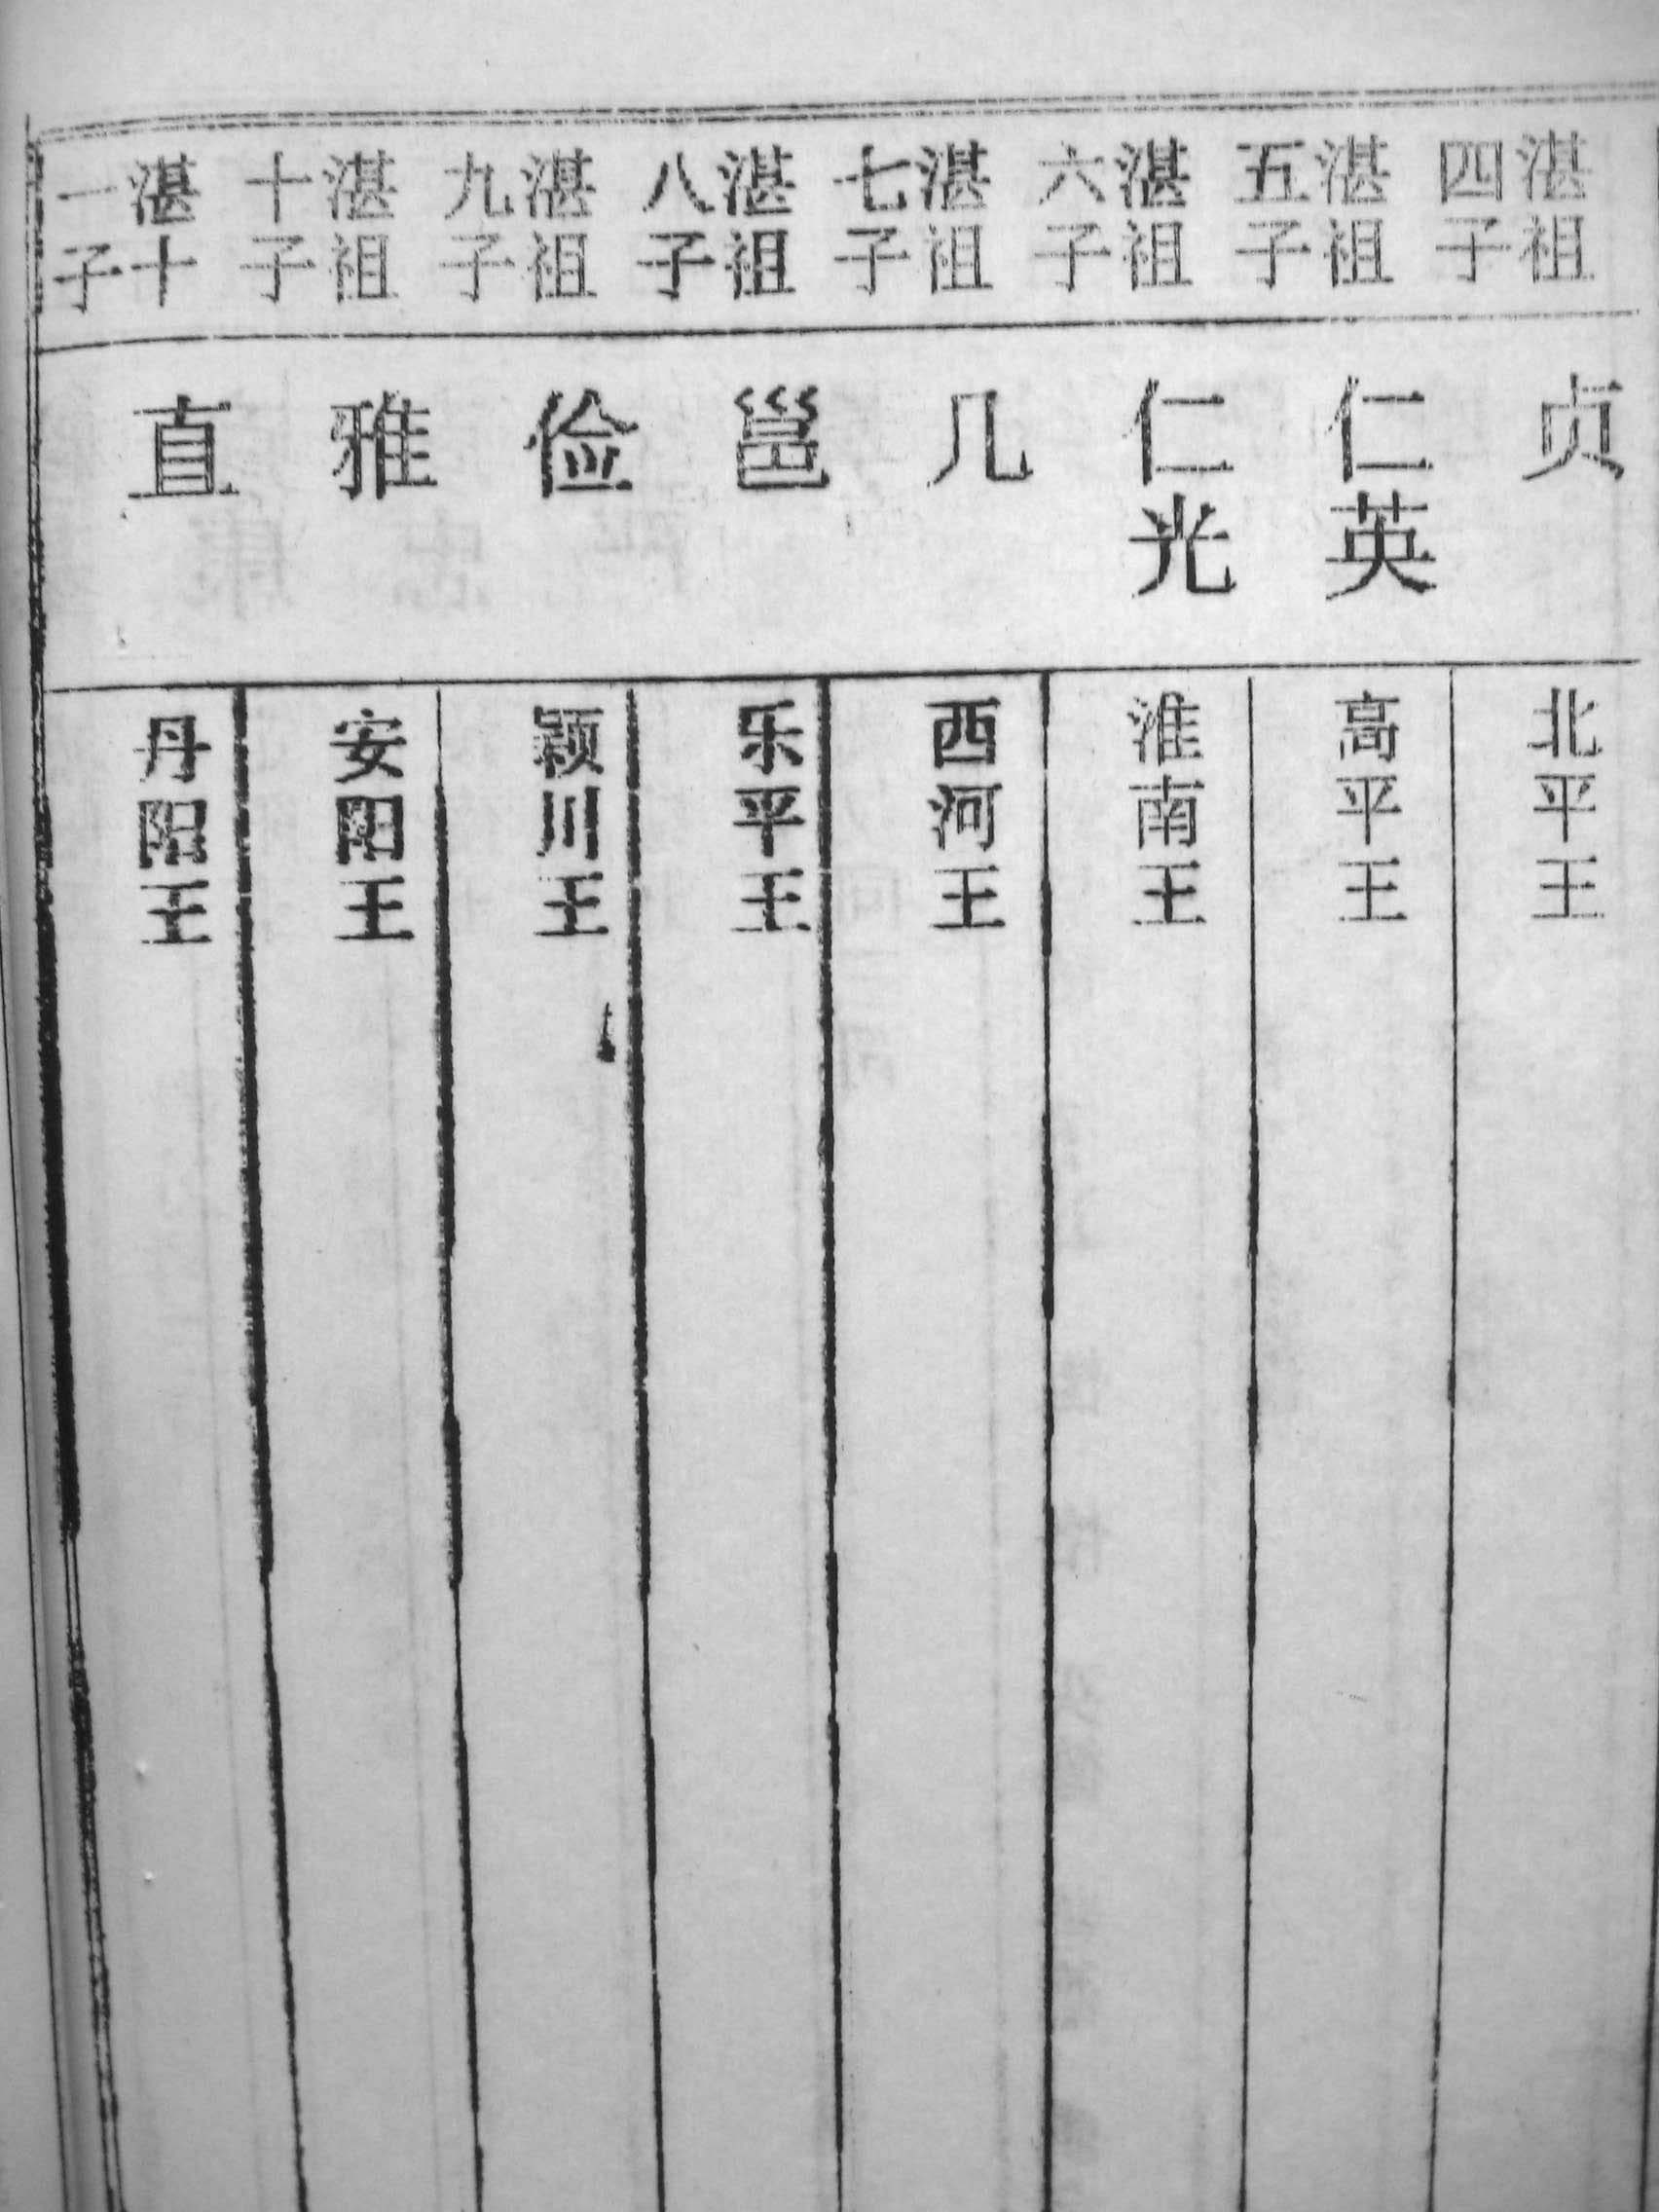 湛祖
四子
贞
北平王
湛祖
五子
仁英
高平王
湛祖
六子
仁光
淮南王
湛祖
七子
几
西河王
湛祖
八子
邕
乐平王
湛祖
九子
俭
颖川王
湛祖
十子
雅
安阳王
湛十
一子
直
丹阳王